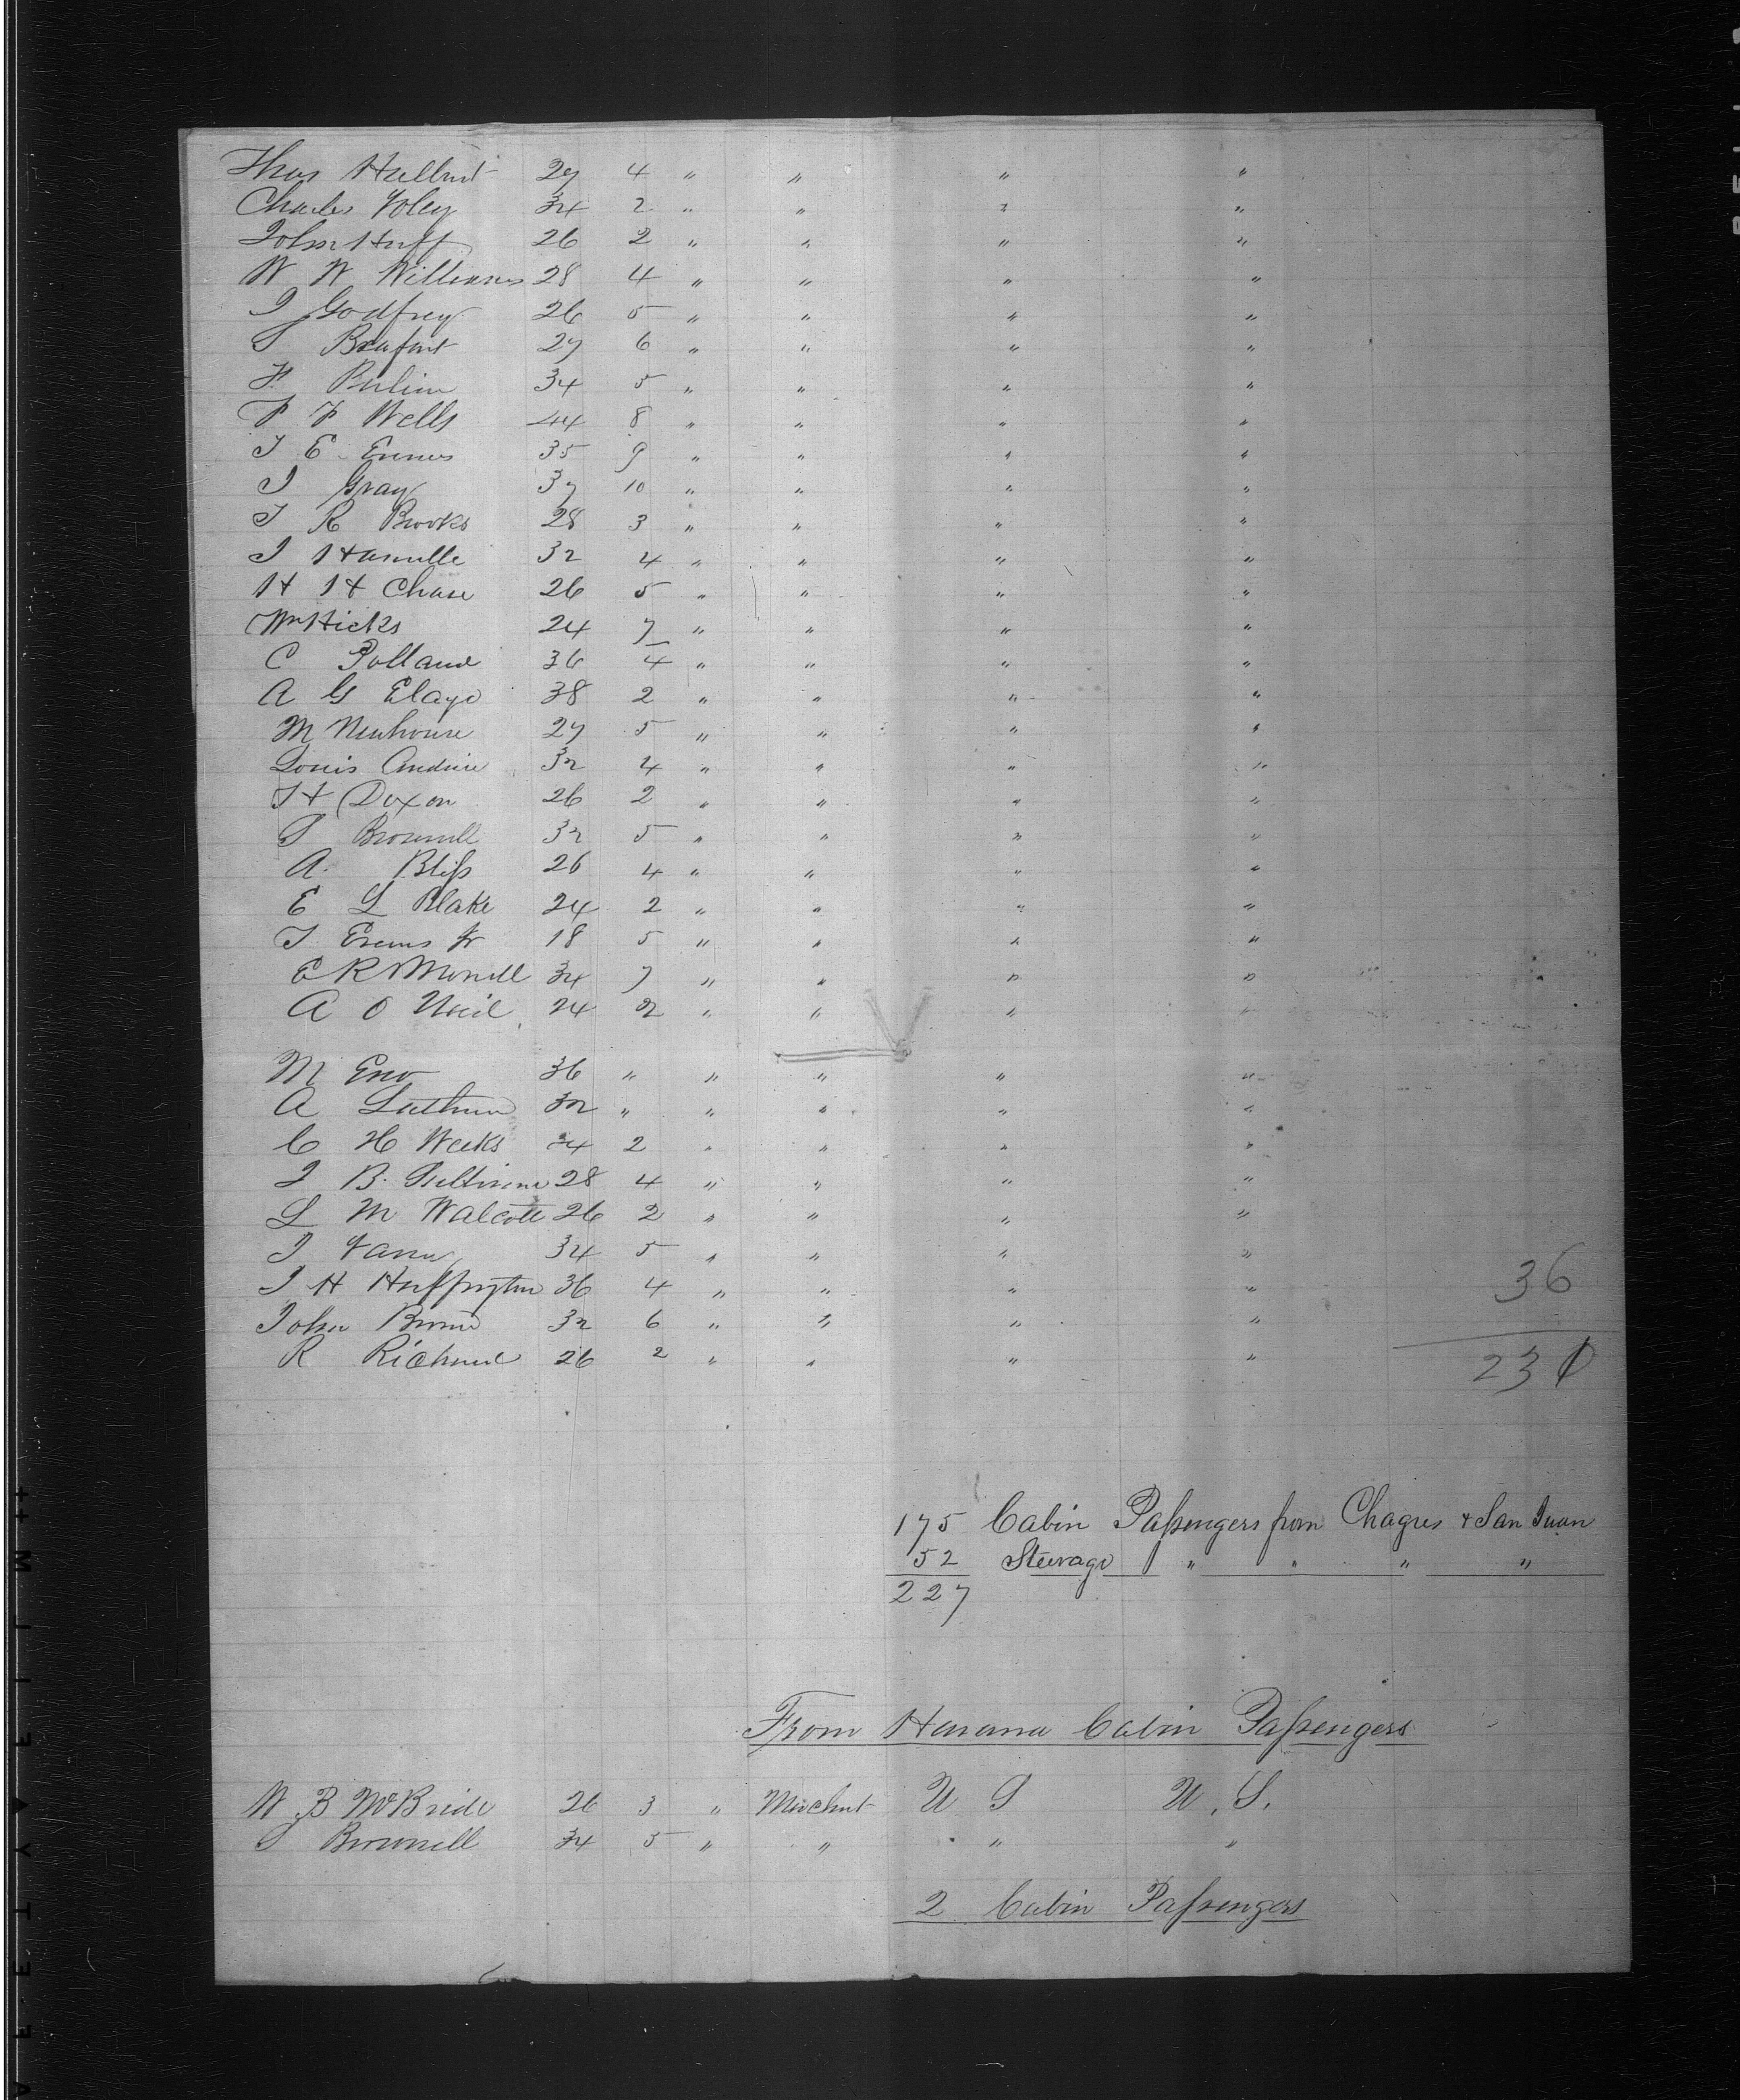 Thos Hulbut 27 4 " " " "
Charles Foley 34 2 " " " "
John Huff 26 2 " " " "
W W Williams 28 4 " " " "
J Godfrey 26 5 " " " "
S 27 6 " " " "
F. 34 5 " " " "
F F Wells 44 8 " " " "
J E 35 9 " " " "
J Gray 37 10 " " " "
J R Brooks 28 3 " " " "
J 32 4 " " " "
H H Chase 26 5 " " " "
Wm Hicks 24 7 " " " "
C 36 4 " " " "
A G Elayo 38 2 " " " "
M Newhouse 27 5 " " " "
Louis 32 4 " " " "
Doxon 26 2 " " " "
S Brownell 32 5 " " " "
A. Bliss 26 4 " " " "
E L Blake 24 2 " " " "
J Jr 18 5 " " " "
E R Morrell 34 7 " " " "
A O Neil 24 2 " " " "
M Eno 36 " " " " "
A 32 " " " " "
C H Weeks 34 2 " " " "
J B. 28 4 " " " "
L M Walcott 26 2 " " " "
J 34 5 " " " "
J H Huffington 36 4 " " " "
36
John 32 6 " " " "
R 26 2 " " " "
231
175 Cabin Passengers from Chagres & San Juan
52 Steerage " " " "
227
From Havana Cabin Passengers
W B McBride 26 3 " Merchnt U S U. S.
S Brownell 34 5 " " " "
2 Cabin Passengers